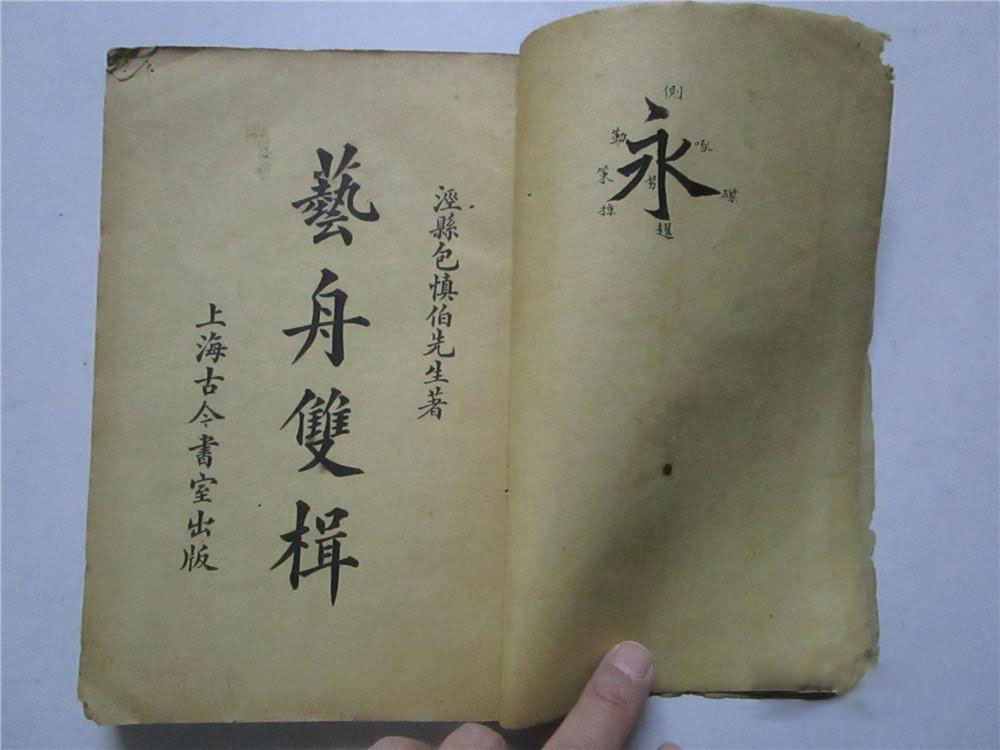 涇縣包慎伯先生著
藝舟雙楫
上海古今書室出版
永
側
勒
啄
策
努
磔
掠
趯